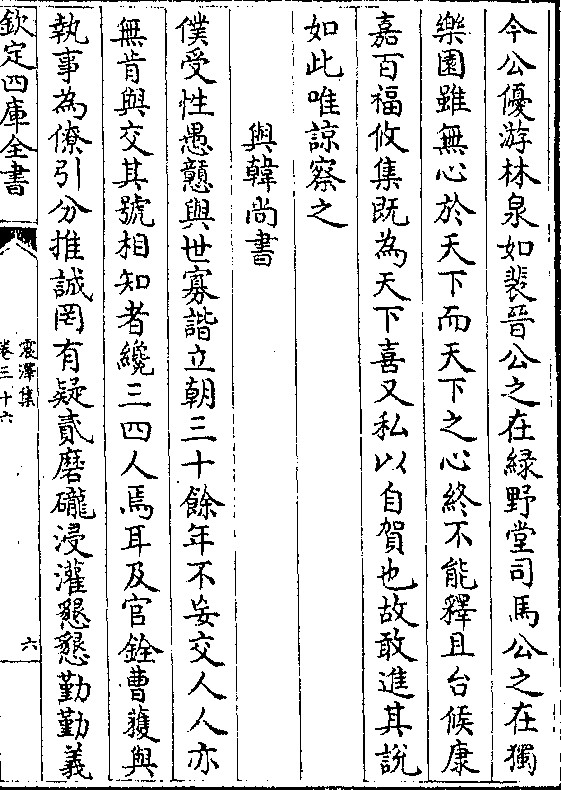 今公優游林泉如裴晉公之在緑野堂司馬公之在獨
樂園雖無心於天下而天下之心終不能釋且台候康
嘉百福攸集既為天下喜又私以自賀也故敢進其説
如此唯諒察之
與韓尚書
僕受性愚戆與世寡諧立朝三十餘年不妄交人人亦
無肯與交其號相知者纔三四人焉耳及官銓曹獲與
執事為僚引分推誠罔有疑貳磨礲浸灌懇懇勤勤義
欽定四庫全書
震澤集
卷三十六
六